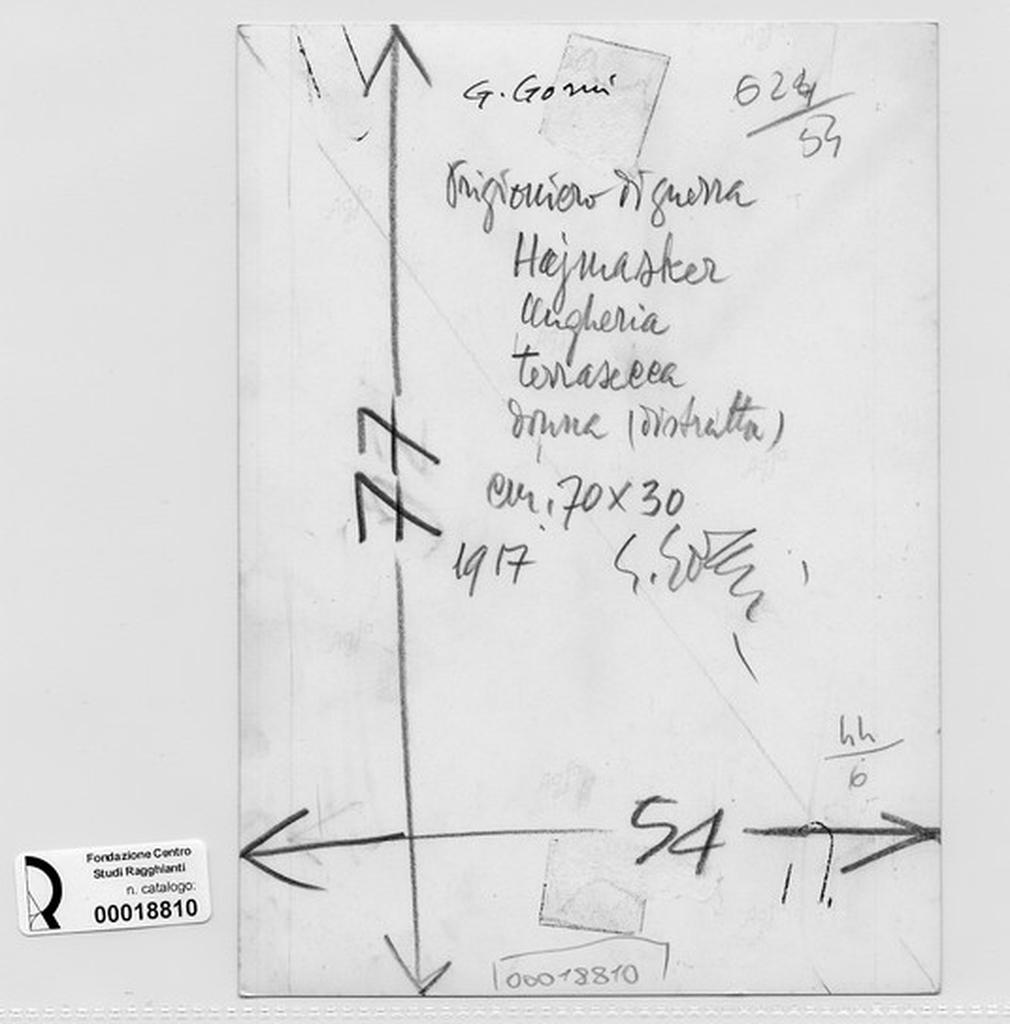 G. Gorni
624/54
Prigioniero di guerra
Hajmasker
Ungheria
terrasecca
donna (distratta)
cm. 70x30
1917
77
44/6
54
17
00018810
Fondazione Centro
Studi Ragghianti
n. catalogo:
00018810